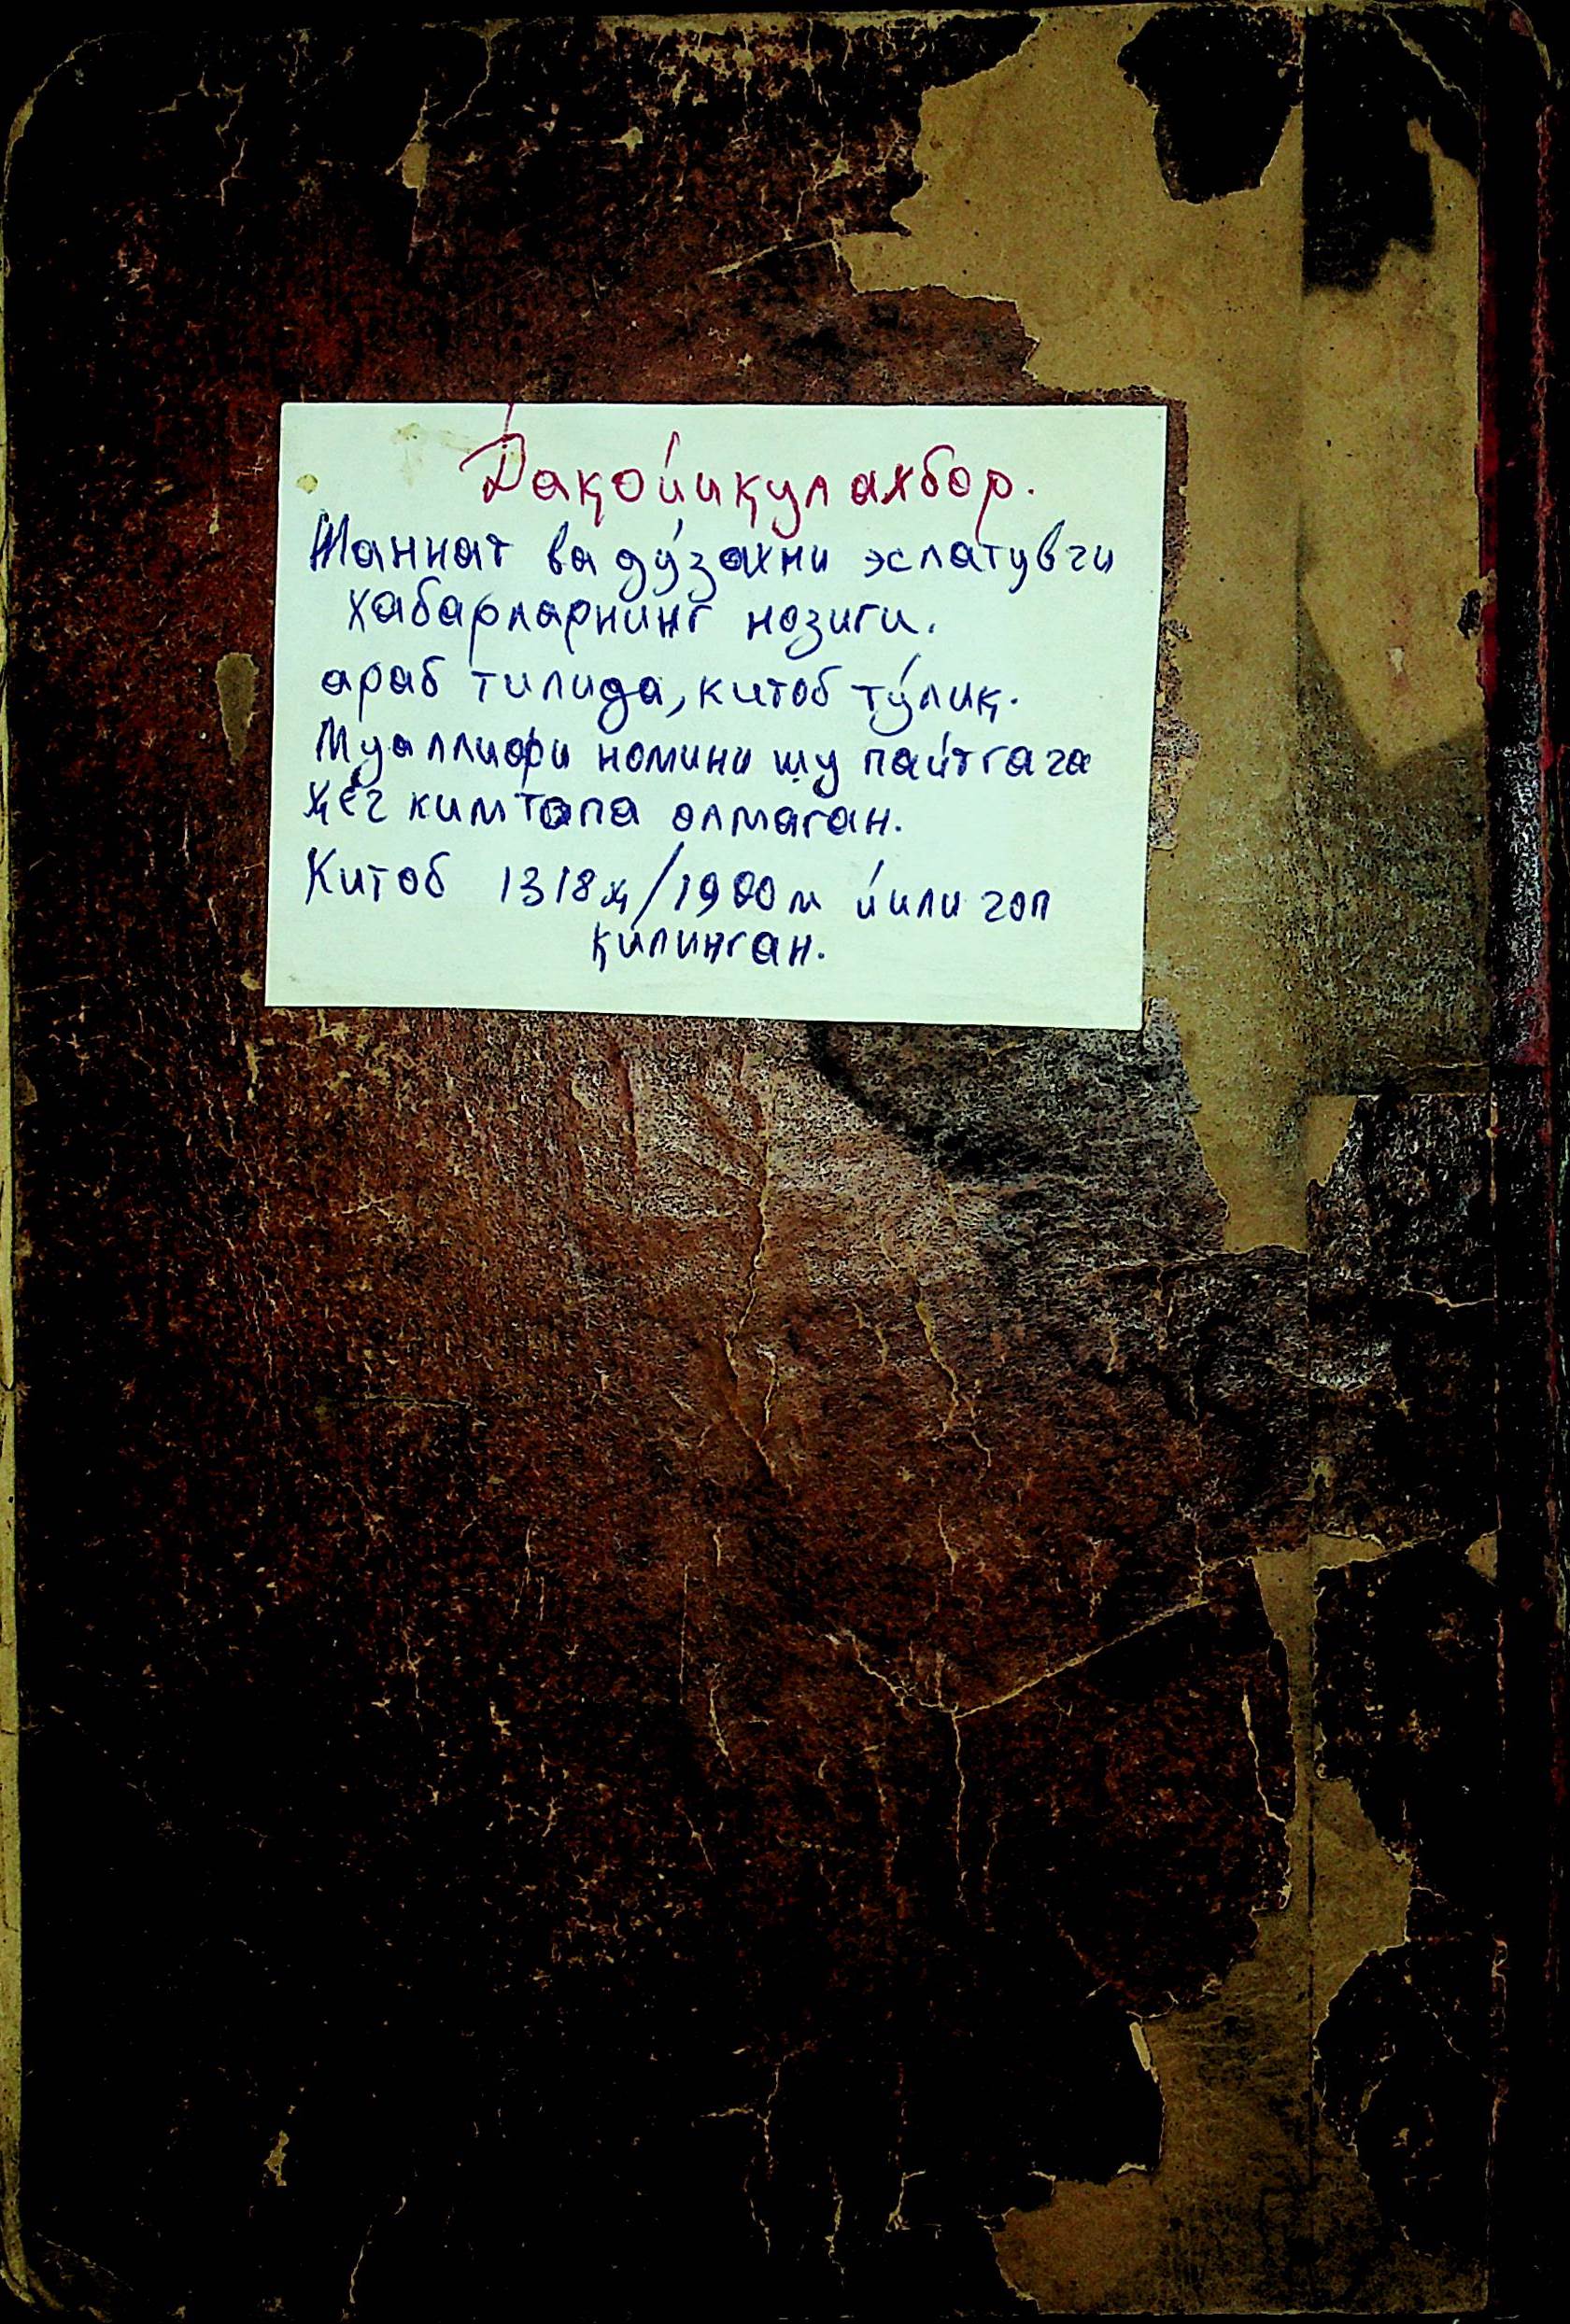 Дақойиқул ахбор.
Жаннат ва дўзахни эслатувчи
хабарларнинг нозиги.
араб тилида, китоб тўлиқ.
Муаллифи номини шу пайтгача
ҳеч ким топа олмаган.
Китоб 1318ҳ/1900м йили чоп
қилинган.